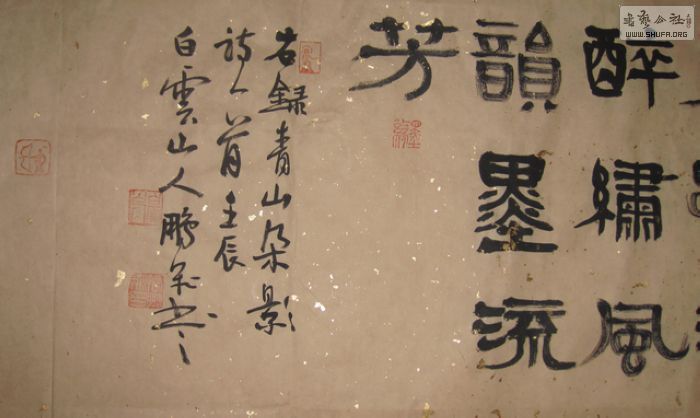 醉繡風
韻墨流
芳
右録青山朵影
詩一首壬辰
白雲山人鵬
書艺公社
WWW.SHUFA.ORG